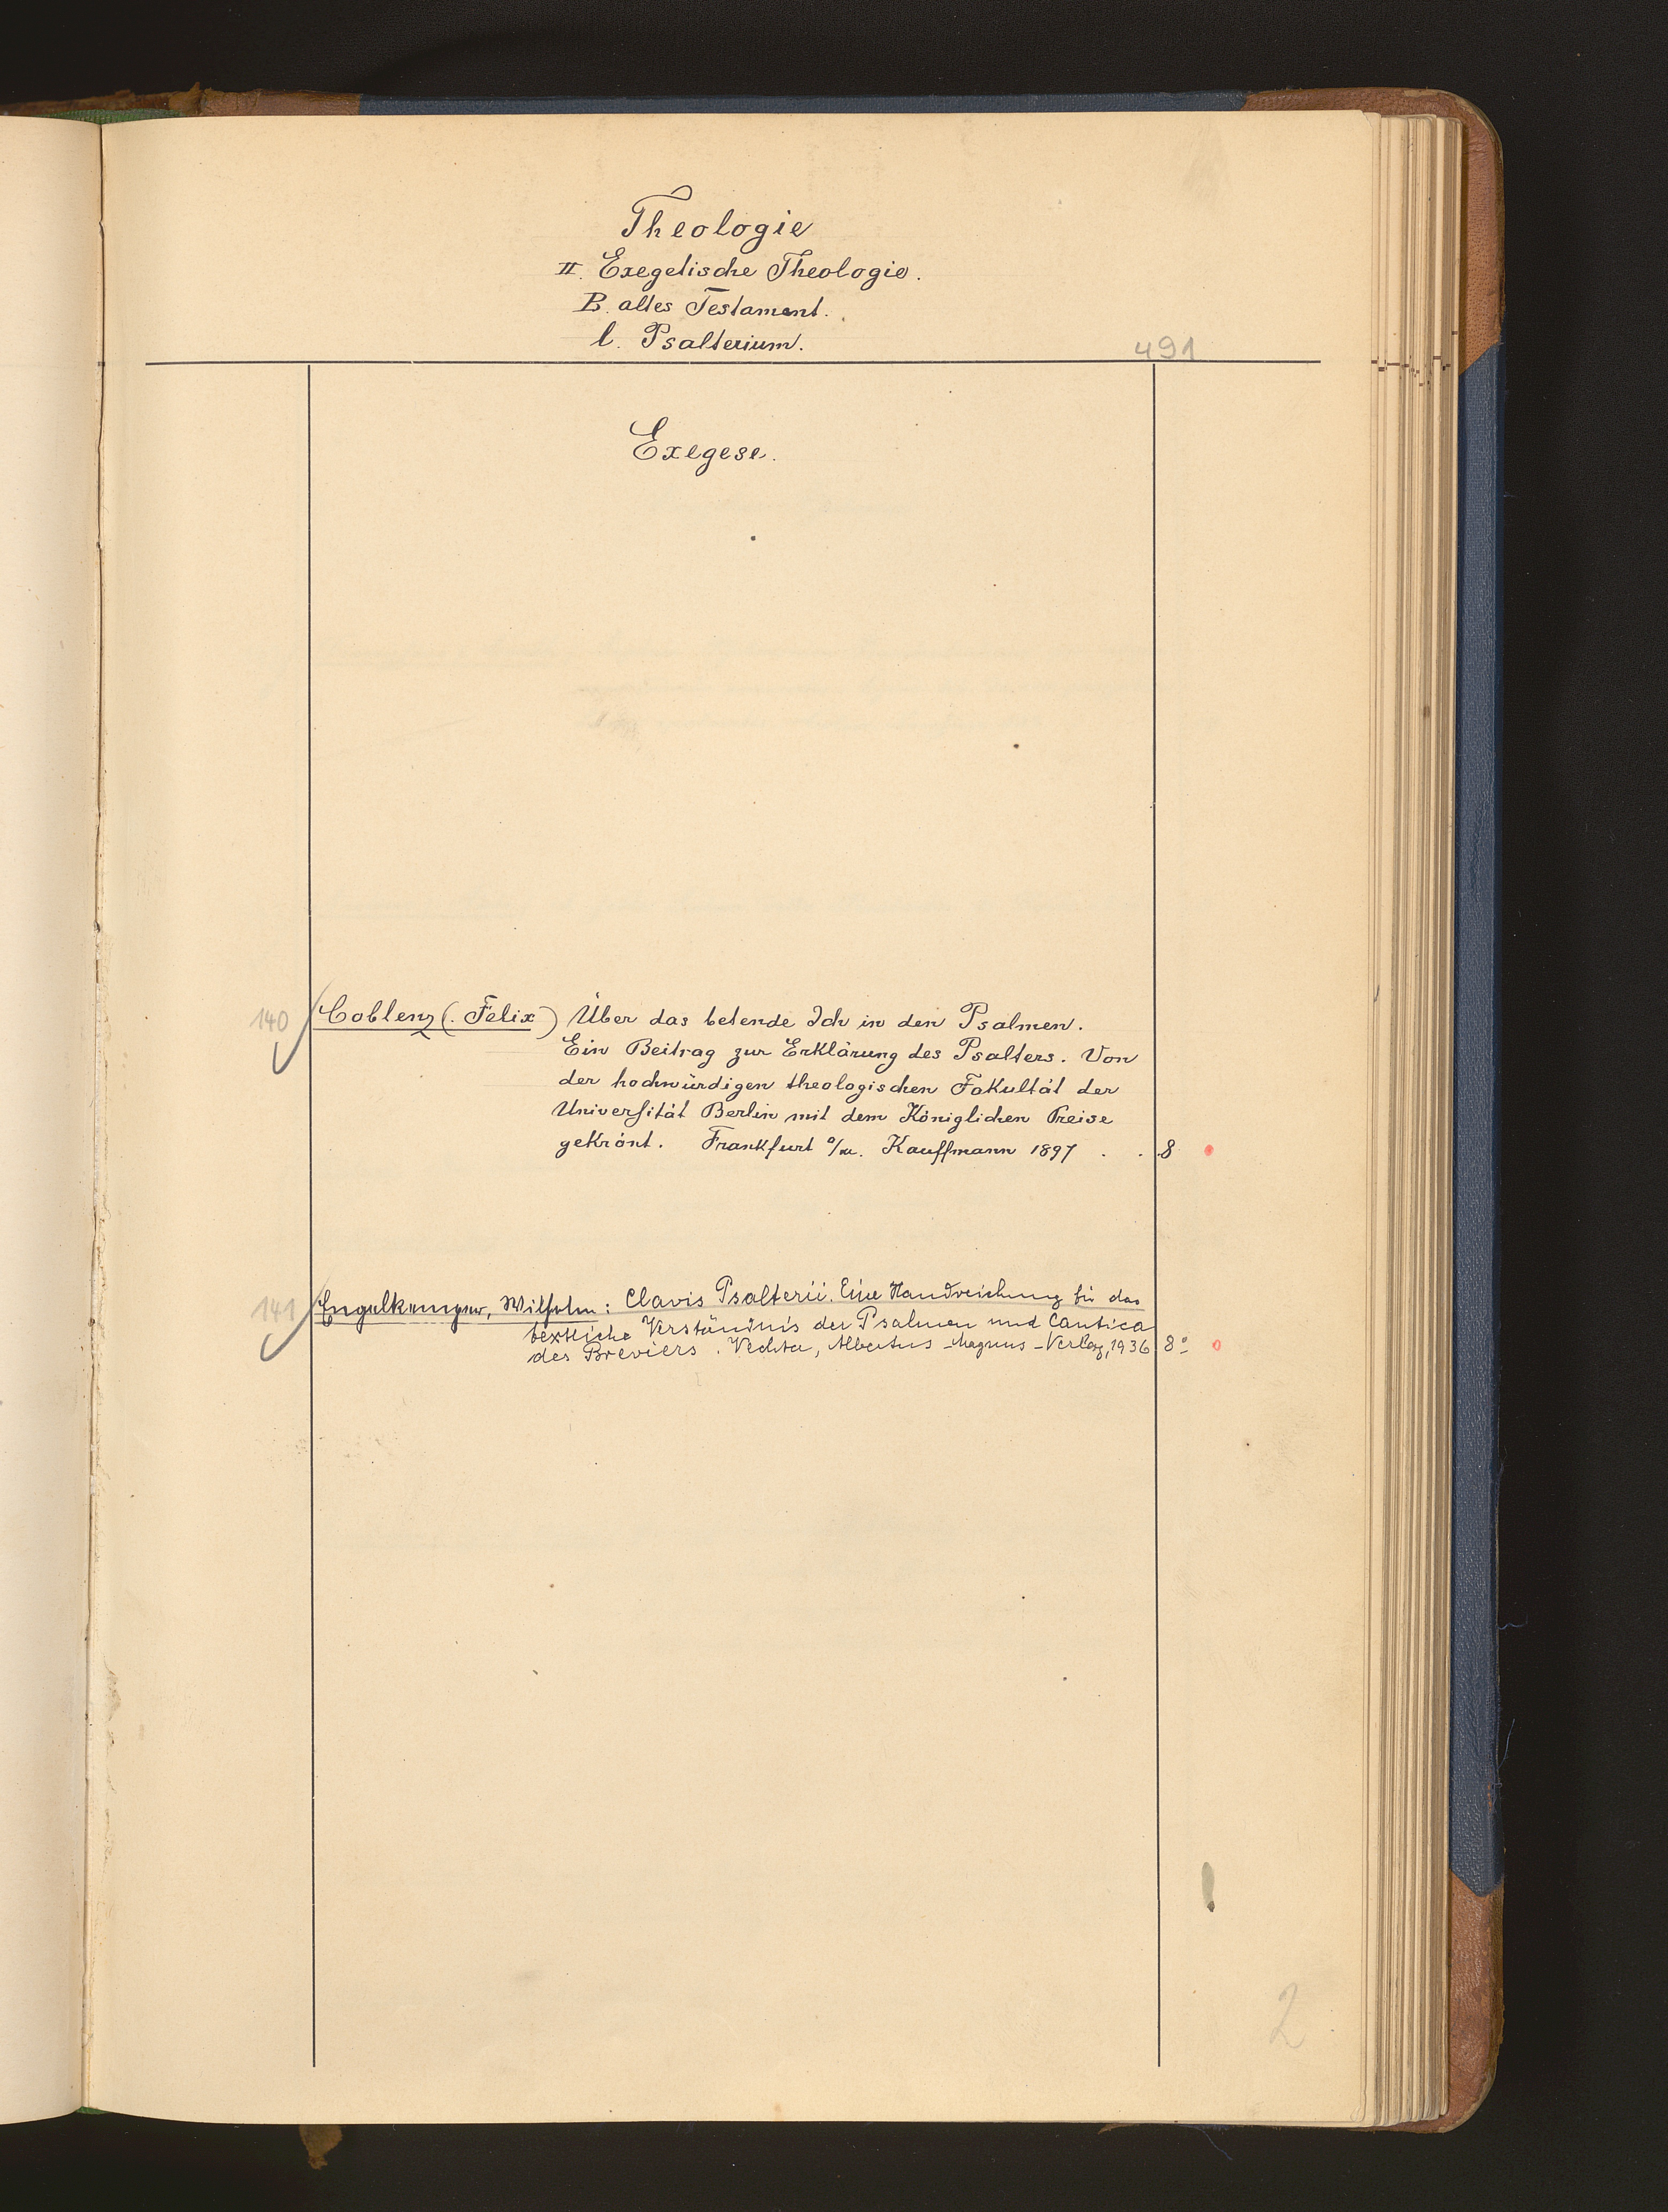 Theologie
II. Exegetische Theologie.
B. altes Testament.
l. Psalterium.
491
Exegese.
140 Coblenz (Felix) Über das betende Ich in den Psalmen.
Ein Beitrag zur Erklärung des Psalters. Von
der hochwürdigen theologischen Fakultät der
Universität Berlin mit dem Königlichen Preise
gekrönt. Frankfurt a/M. Kauffmann 1897 . . 8
141 Engelkemper, Wilhelm: Clavis Psalterii. Eine Handreichung für das
textliche Verständnis der Psalmen und Cantica
des Breviers. Vechta, Albertus-Magnus-Verlag, 1936 8°
2